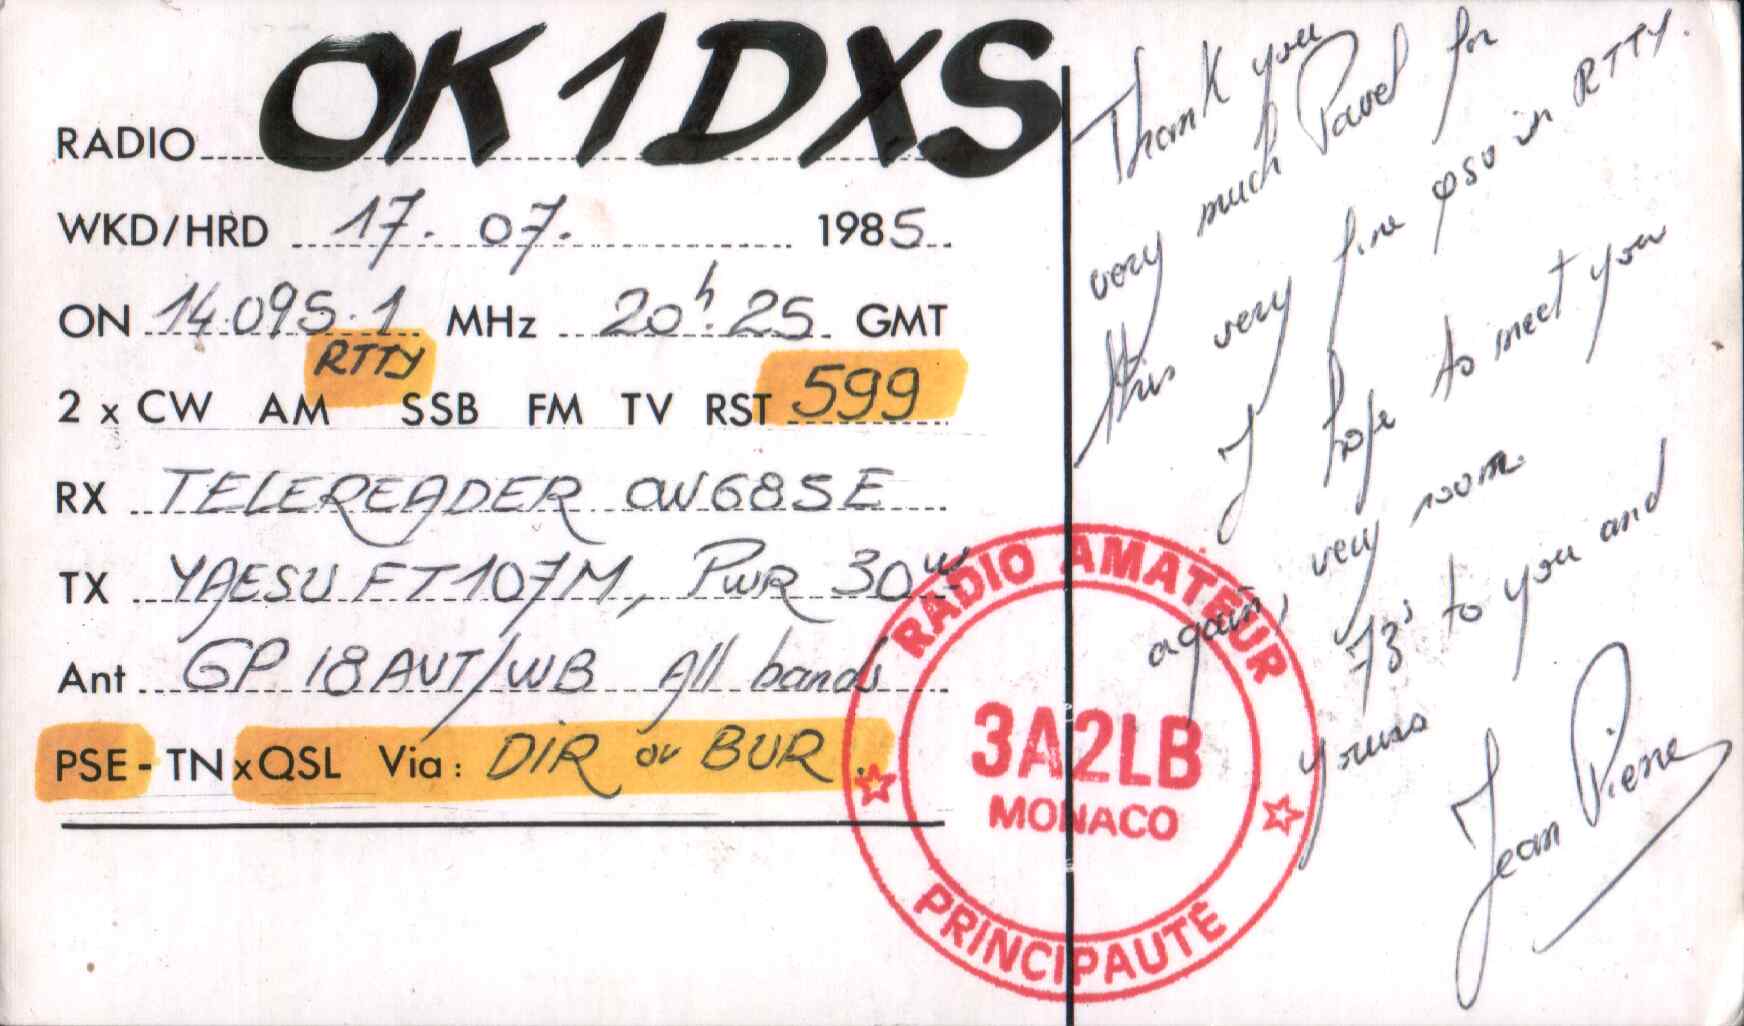 RADIO OK1DXS
WKD/HRD 17. 07. 1985
ON 14.095.1 MHz 20h.25 GMT
RTTY
2 x CW AM SSB FM TV RST 599
RX TELEREADER CW685E
TX YAESU FT107M, PWR 30W
Ant GP 18AVT/WB All bands
PSE - TN x QSL Via : DIR ou BUR.
Thank you
very much Pavel for
this very fine QSO in RTTY.
I hope to meet you
again, very soon.
73's to you and
yours
Jean Pierre
RADIO AMATEUR
3A2LB
MONACO
PRINCIPAUTÉ